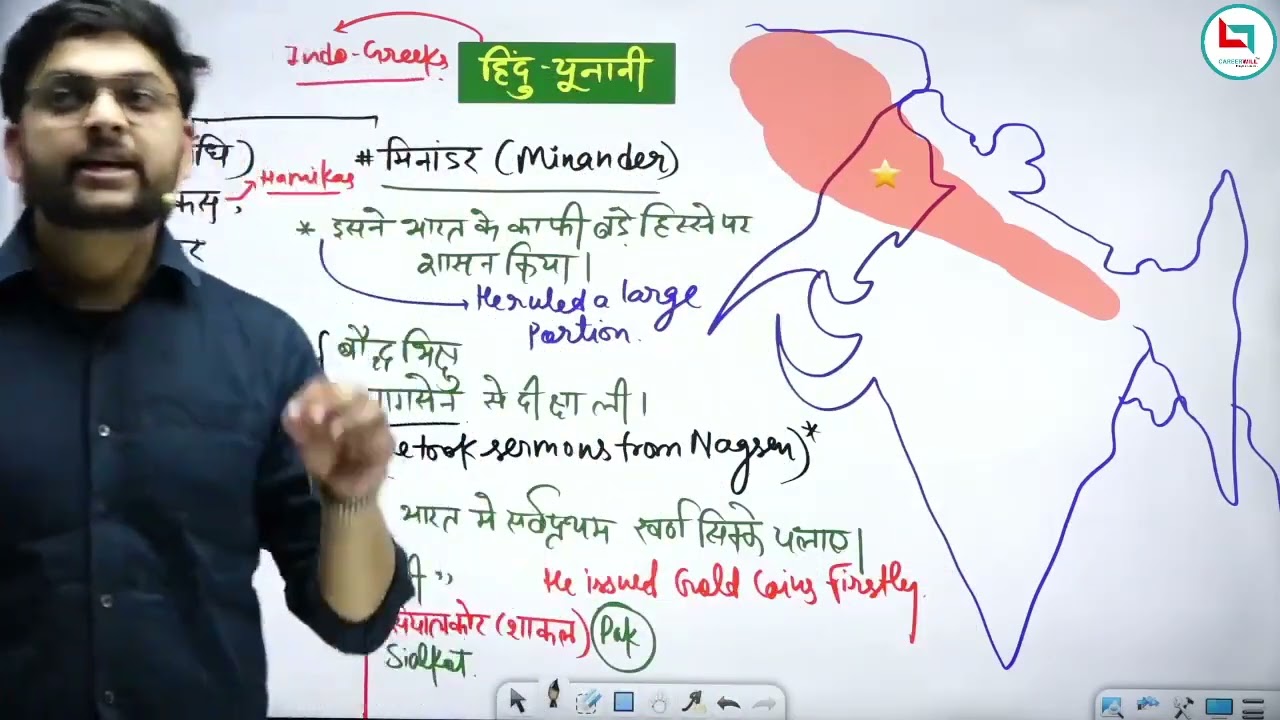 Indo-Greeks
हिंदु-यूनानी
CAREERWILL
धि)
# मिनांडर (Minander)
Hamikas
* इसने भारत के काफी बड़े हिस्से पर
शासन किया।
He ruled a large
Portion.
बौद्ध भिक्षु
गसेन से दीक्षा ली।
e took sermons from Nagsen)*
भारत मे सर्वप्रथम स्वर्ण सिक्के चलाए।
He issued Gold Coins Firstly.
सियालकोट (शाकल) Pak
Sialkot.